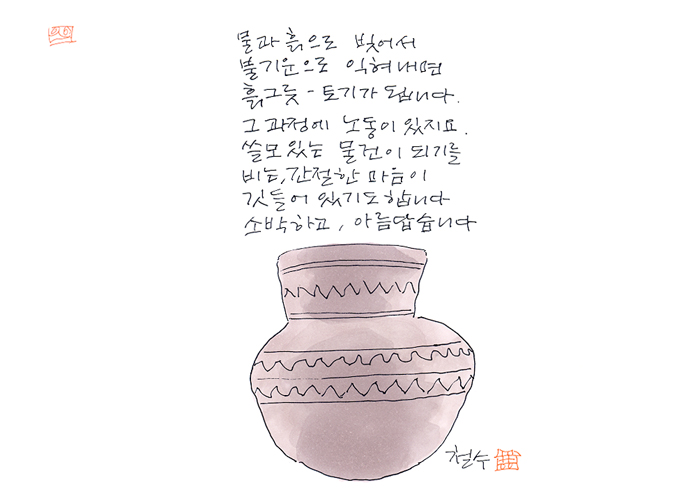 물과 흙으로 빚어서
불기운으로 익혀내면
흙그릇 - 토기가 됩니다.
그 과정에 노동이 있지요.
쓸모있는 물건이 되기를
비는, 간절한 마음이
깃들어 있기도 합니다
소박하고, 아름답습니다
철수